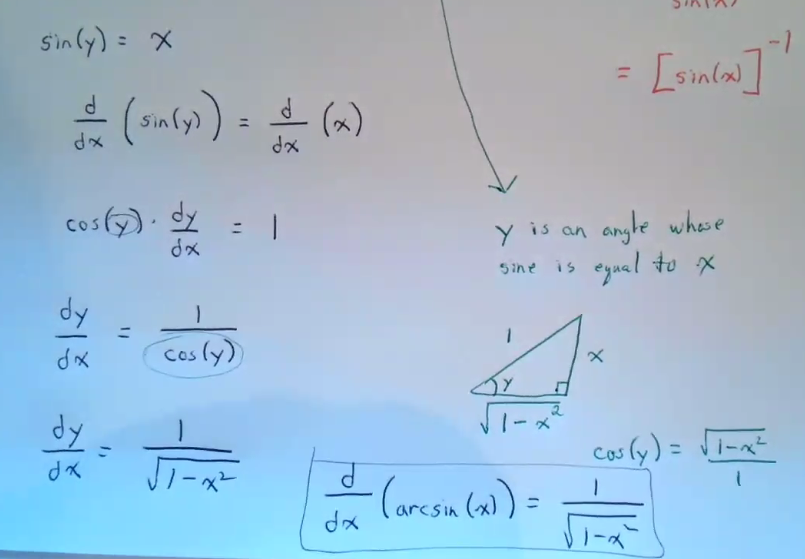 sin(y) = x
d/dx (sin(y)) = d/dx (x)
cos(y) · dy/dx = 1
dy/dx = 1/cos(y)
dy/dx = 1/√(1-x²)
sin(x)
= [sin(x)]⁻¹
y is an angle whose
sine is equal to x
1
x
y
√(1-x²)
cos(y) = √(1-x²)/1
d/dx (arcsin(x)) = 1/√(1-x²)